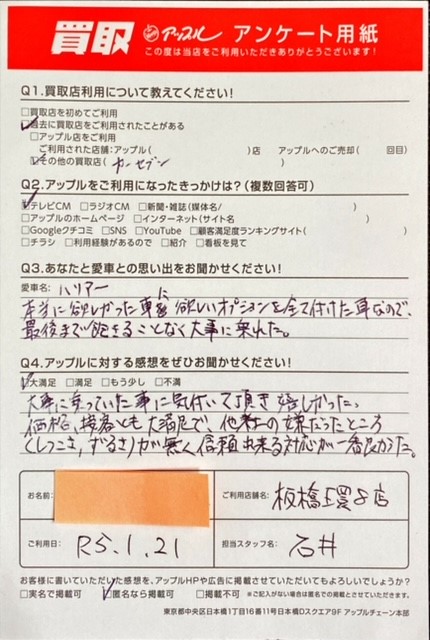 買取 アップル アンケート用紙
この度は当店をご利用いただきありがとうございます!
Q1.買取店利用について教えてください!
□買取店を初めてご利用
☑過去に買取店をご利用されたことがある
□アップル店をご利用
ご利用された店舗:アップル( )店 アップルへのご売却( 回目)
☑その他の買取店( カーセブン )
Q2.アップルをご利用になったきっかけは?(複数回答可)
☑テレビCM □ラジオCM □新聞・雑誌(媒体名/ )
□アップルのホームページ □インターネット(サイト名 )
□Googleクチコミ □SNS □YouTube □顧客満足度ランキングサイト( )
□チラシ □利用経験があるので □紹介 □看板を見て
Q3.あなたと愛車との思い出をお聞かせください!
愛車名: ハリアー
本当に欲しかった車に欲しいオプションを全て付けた車なので、
最後まで飽きることなく大事に乗れた。
Q4.アップルに対する感想をぜひお聞かせください!
☑大満足 □満足 □もう少し □不満
大事に乗っていた事に気付いて頂き嬉しかった。
価格、接客とも大満足で、他社の嫌だったところ
(しつこさ、ずるさ)が無く信頼出来る対応が一番良かった。
お名前:
ご利用店舗名: 板橋環8店
ご利用日: R5.1.21
担当スタッフ名: 石井
お客様に書いていただいた感想を、アップルHPや広告に掲載してもよろしいでしょうか?
□実名で掲載可 ☑匿名なら掲載可 □掲載不可 ※ご記入がない場合は匿名での掲載とさせていただきます。
東京都中央区日本橋1丁目16番11号日本橋Dスクエア9F アップルチェーン本部